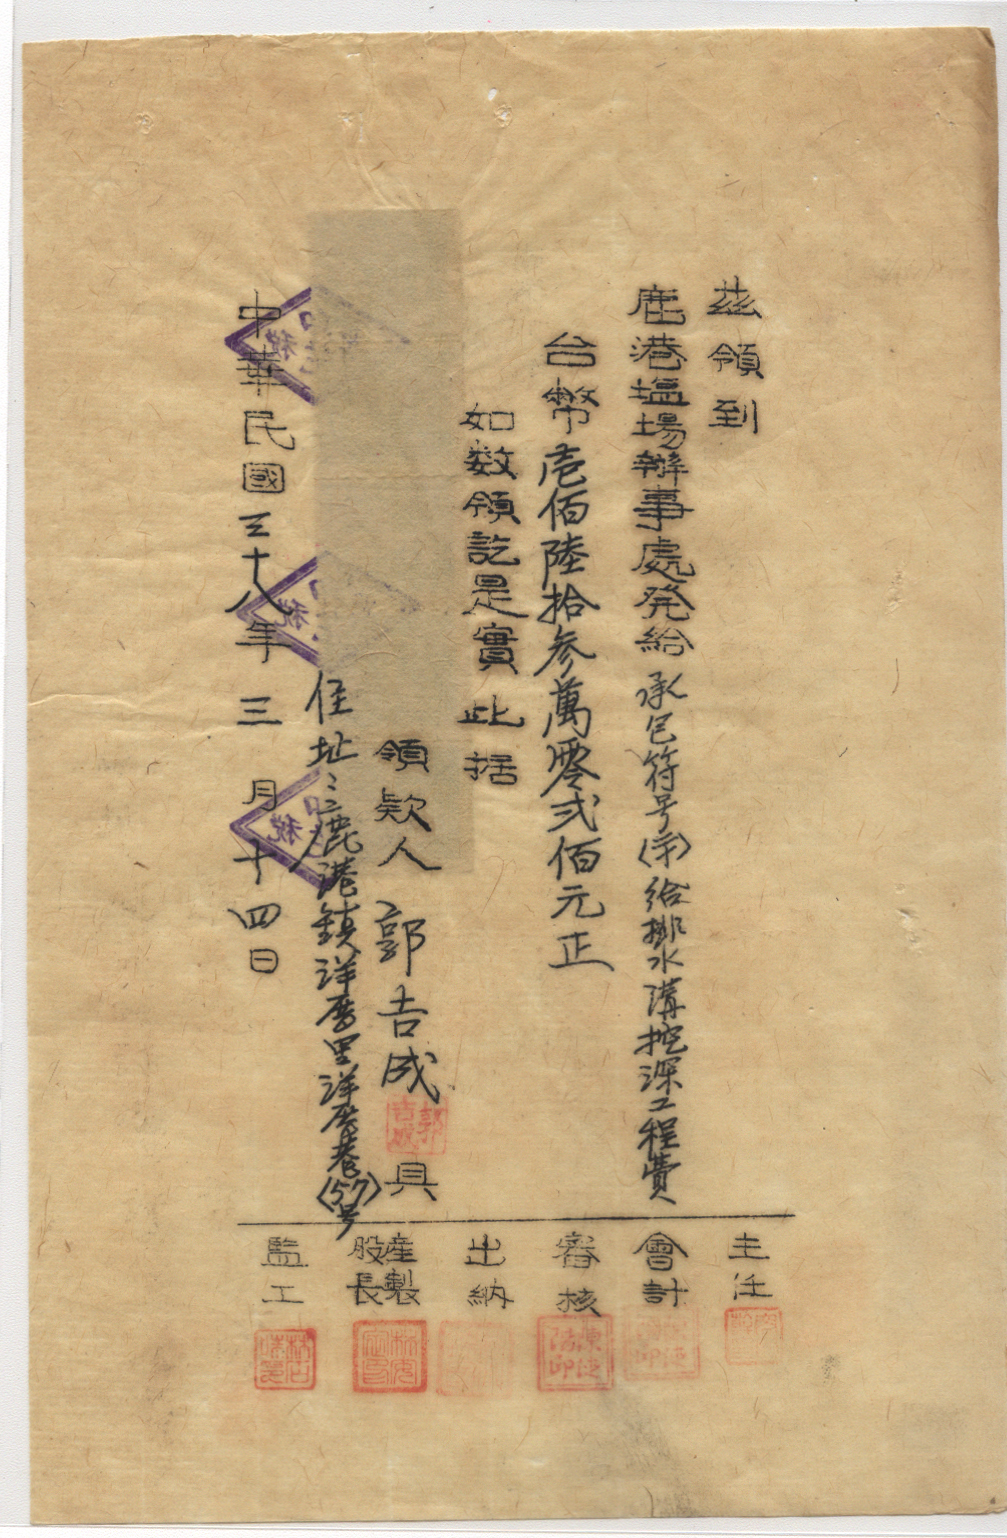 茲領到
鹿港塩場辦事處発給承包符号〈宇〉給排水溝挖深工程費
台幣壱佰陸拾参萬零弍佰元正
如数領訖是實此括
領欵人 郭吉成 具
郭吉成
住址:鹿港鎮洋厝里洋厝巷〈57〉号
中華民國三十八年三月十四日
主任
會計
審核
出納
産製股長
監工